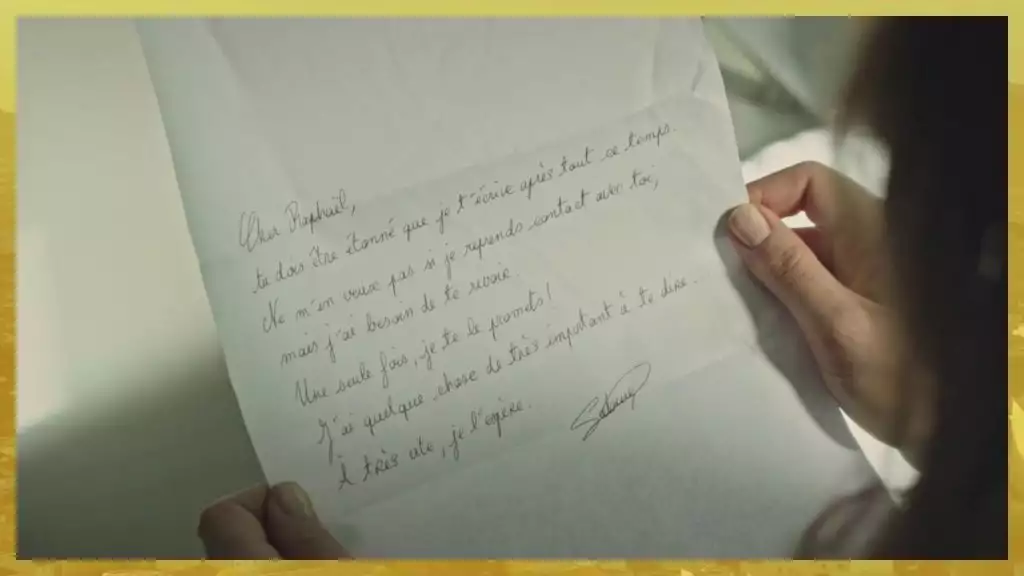 Cher Raphaël,
tu dois être étonné que je t'écrive après tout ce temps.
Ne m'en veux pas si je reprends contact avec toi,
mais j'ai besoin de te revoir.
Une seule fois, je te le promets!
J'ai quelque chose de très important à te dire.
À très vite, je l'espère.